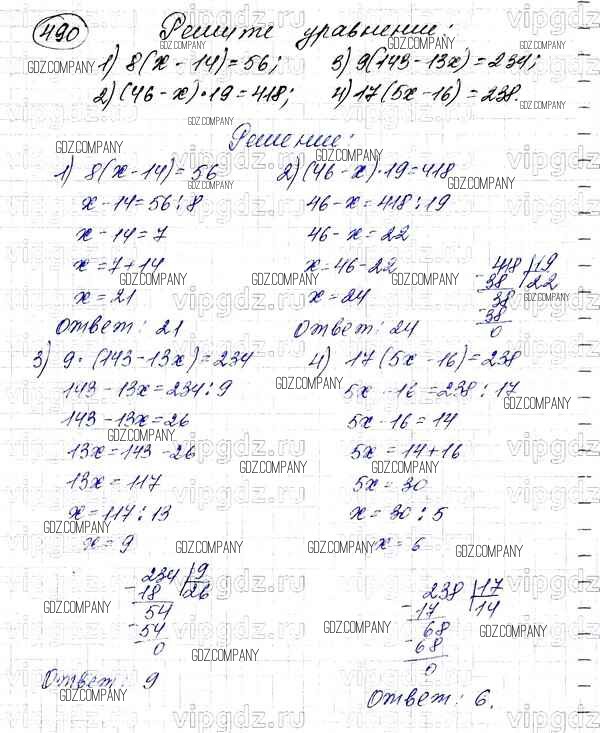 490 Решите уравнение:
1) 8(x - 14) = 56; 3) 9(143 - 13x) = 234;
2) (46 - x) · 19 = 418; 4) 17(5x - 16) = 238.
Решение:
1) 8(x - 14) = 56
x - 14 = 56 : 8
x - 14 = 7
x = 7 + 14
x = 21
Ответ: 21
2) (46 - x) · 19 = 418
46 - x = 418 : 19
46 - x = 22
x = 46 - 22
x = 24
418 | 19
- 38 | 22
38
- 38
0
Ответ: 24
3) 9 · (143 - 13x) = 234
143 - 13x = 234 : 9
143 - 13x = 26
13x = 143 - 26
13x = 117
x = 117 : 13
x = 9
234 | 9
- 18 | 26
54
- 54
0
Ответ: 9
4) 17(5x - 16) = 238
5x - 16 = 238 : 17
5x - 16 = 14
5x = 14 + 16
5x = 30
x = 30 : 5
x = 6
238 | 17
- 17 | 14
68
- 68
0
Ответ: 6.
GDZ.COMPANY
vipgdz.ru